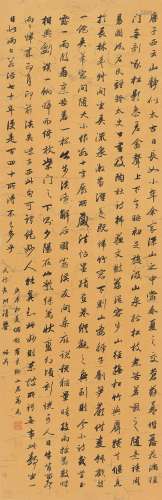 唐子西云山靜似太古日長如小年余家深山之中每春夏之交蒼蘚盈堦落花滿徑
門無剝啄松影參差禽聲上下午睡初足旋汲山泉拾松枝煮苦茗啜之隨意讀周
易國風左氏傳離騷太史公書及陶杜詩韓蘇文數篇從容步山徑撫松竹與麛犢共偃息
於長林豐草間坐弄流泉漱齒濯足既歸竹窗下則山妻稚子作筍蕨供麥飯欣然
一飽弄筆窗間隨大小作數十字展所藏法帖墨蹟畫卷縱觀之興到則吟小詩或草玉
露一兩段再烹苦茗一杯出步溪邊解后園翁溪友問桑麻說秔稻量晴校雨探節數時
相與劇談一餉歸而倚杖柴門之下則夕陽在山紫綠萬狀變幻頃刻恍可人目牛背笛聲
兩兩來歸而月印前溪矣味子西此句可謂妙絕人能真知此妙則東坡所謂無事此靜坐一
日似兩日若活七十年便是百四十所得不已多乎